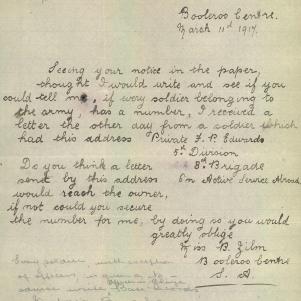 Booleroo Centre.
March 11th 1917.
Seeing your notice in the paper,
thought I would write and see if you
could tell me, if every soldier belonging to
the army, has a number, I received a
letter the other day from a soldier which
had this address Private F. P. Edwards
5th Division
Do you think a letter 8th Brigade
sent by this address On Active Service Abroad
would reach the owner,
if not could you secure
the number for me, by doing so you would
greatly oblige
Miss B. Zilm
Booleroo Centre
S. A.
Every soldier with exception
of officers, is given a